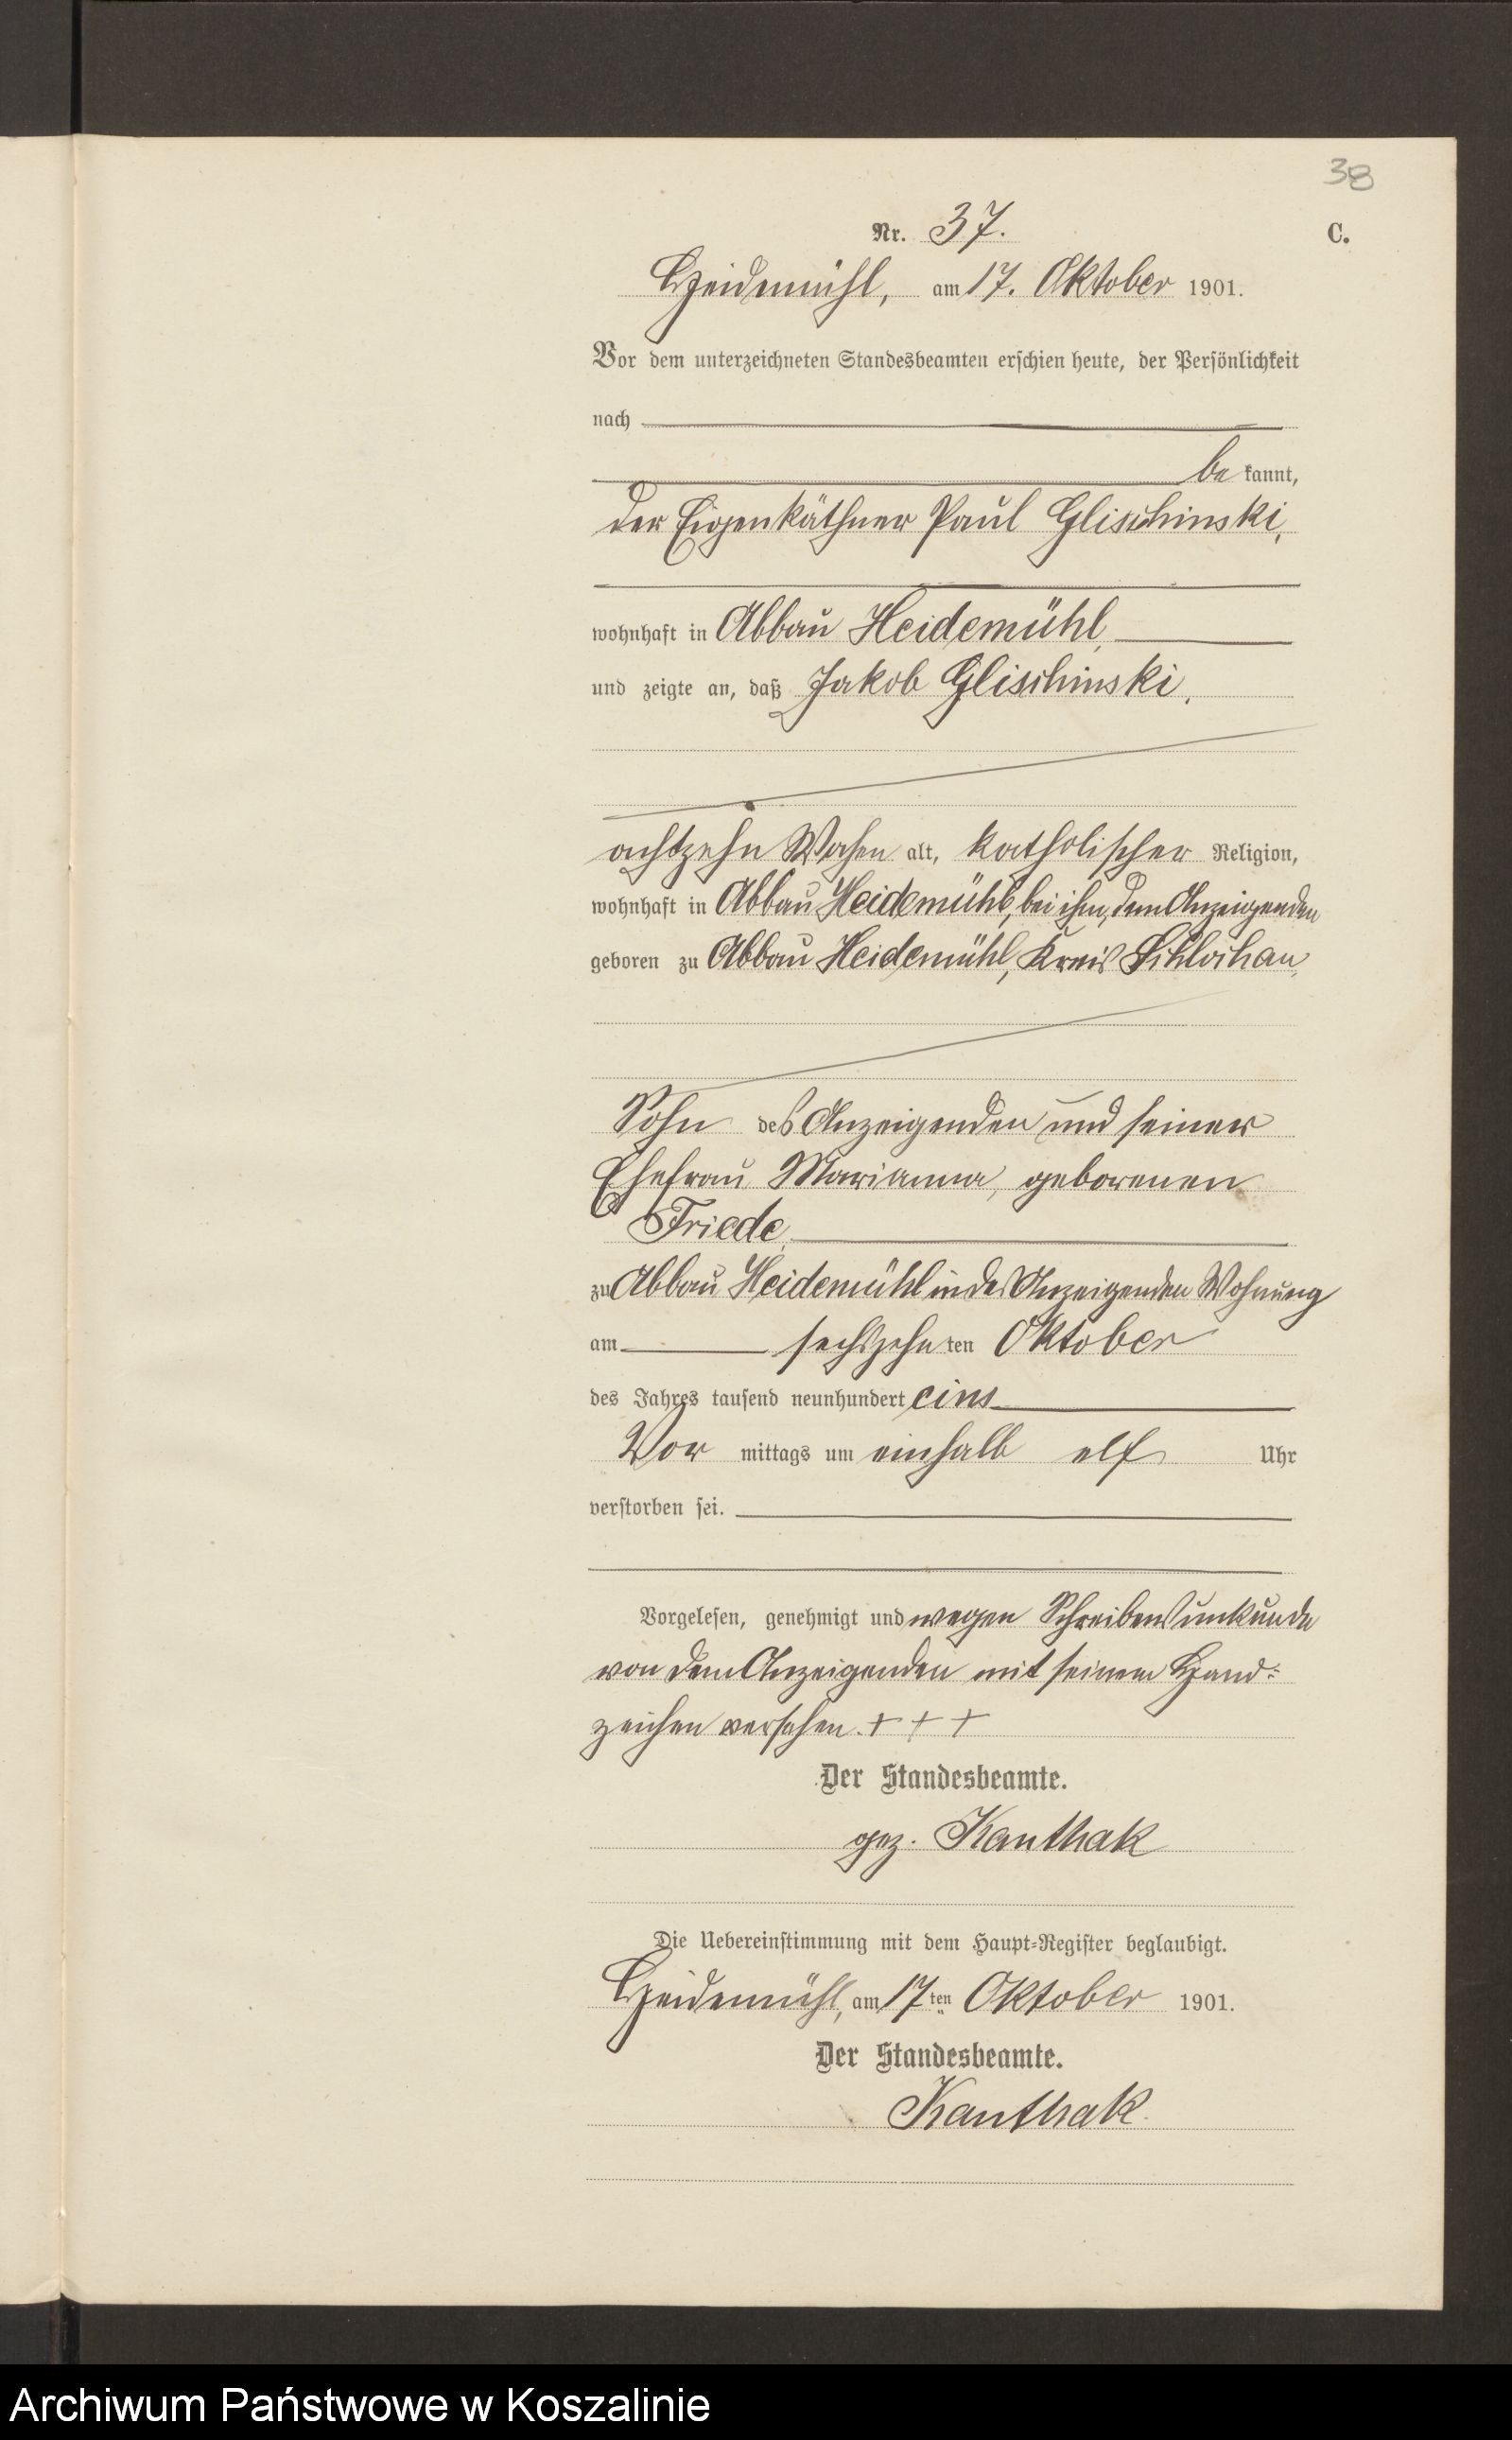 38
Nr. 37. C.
Heidemühl, am 17. Oktober 1901.
Vor dem unterzeichneten Standesbeamten erschien heute, der Persönlichkeit
nach
be kannt,
der Eigenkäthner Paul Glischinski,
wohnhaft in Abbau Heidemühl,
und zeigte an, daß Jakob Glischinski,
achtzehn Wochen alt, katholischer Religion,
wohnhaft in Abbau Heidemühl, bei ihm, dem Anzeigenden
geboren zu Abbau Heidemühl, Kreis Schlochau,
Sohn des Anzeigenden und seiner
Ehefrau Marianna, geborenen
Friede,
zu Abbau Heidemühl in des Anzeigenden Wohnung
am sechszehn ten Oktober
des Jahres tausend neunhundert eins
Vor mittags um einhalb elf Uhr
verstorben sei.
Vorgelesen, genehmigt und wegen Schreibensunkunde
von dem Anzeigenden mit seinem Hand-
zeichen versehen. + + +
Der Standesbeamte.
gez. Kanthak
Die Uebereinstimmung mit dem Haupt-Register beglaubigt.
Heidemühl, am 17ten Oktober 1901.
Der Standesbeamte.
Kanthak.
Archiwum Państwowe w Koszalinie